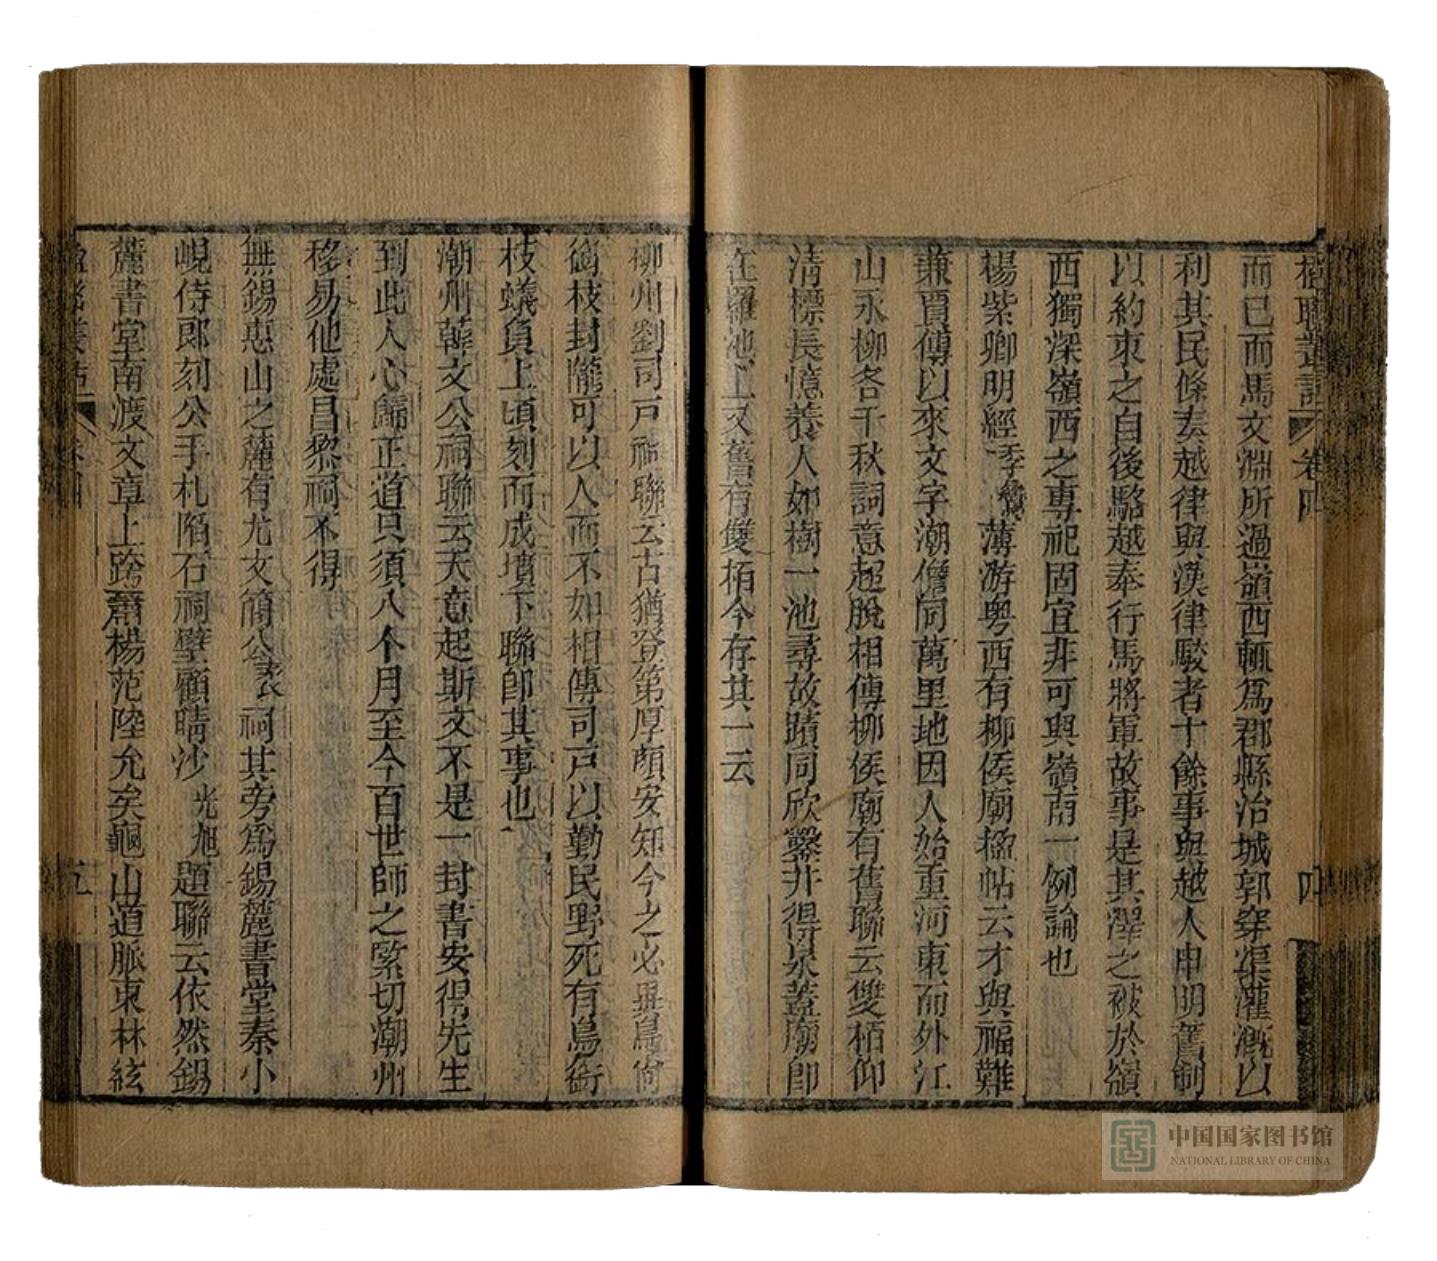 楹聯叢話 卷四 四
而已而馬文淵所過嶺西輒爲郡縣治城郭穿渠灌溉以
利其民條奏越律與漢律駮者十餘事與越人申明舊制
以約束之自後駱越奉行馬將軍故事是其澤之被於嶺
西獨深嶺西之專祀固宜非可與嶺南一例論也
楊紫卿明經季鸞薄游粵西有柳侯廟楹帖云才與福難
兼賈傅以來文字潮儋同萬里地因人始重河東而外江
山永柳各千秋詞意超脫相傳柳侯廟有舊聯云雙栢仰
淸標長憶養人如樹一池尋故蹟同欣鑿井得泉蓋廟卽
在羅池上又舊有雙栢今存其一云
柳州劉司戸祠聯云古猶登第厚顏安知今之必異鳥尙
銜枝封隴可以人而不如相傳司戸以勤民野死有鳥銜
枝蟻負土頃刻而成墳下聯卽其事也
潮州韓文公祠聯云天意起斯文不是一封書安得先生
到此人心歸正道只須八个月至今百世師之緊切潮州
移易他處昌黎祠不得
無錫惠山之麓有尤文簡公袤祠其旁爲錫麓書堂秦小
峴侍郎刻公手札陷石祠壁顧晴沙光旭題聯云依然錫
麓書堂南渡文章上跨蕭楊范陸允矣龜山道脈東林絃
楹聯叢話 卷四 五
中国国家图书馆
NATIONAL LIBRARY OF CHINA